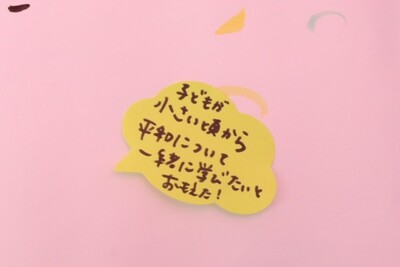 子どもが
小さい頃から
平和について
一緒に学びたいと
おもえた!